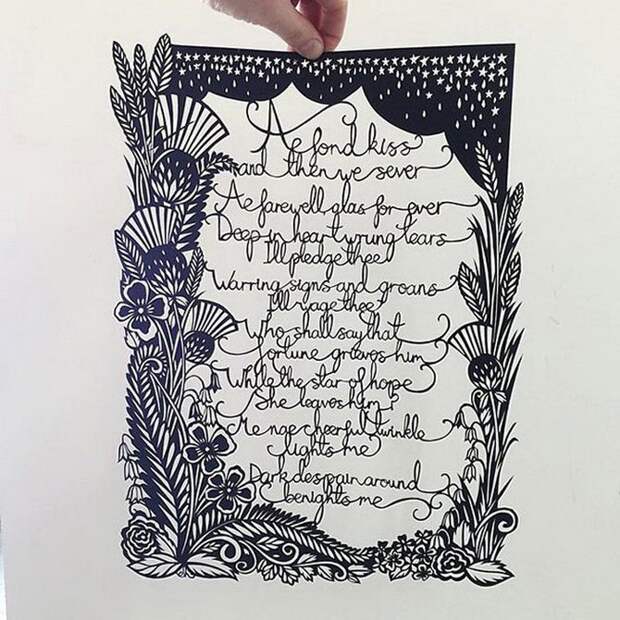 Ae fond kiss
and then we sever
Ae farewell glas for ever
Deep in heart wrung tears
I'll pledge thee
Warring signs and groans
I'll wage thee
Who shall say that
fortune grieves him
While the star of hope
She leaves him?
Me nae cheerful twinkle
lights me
Dark despair around
benights me